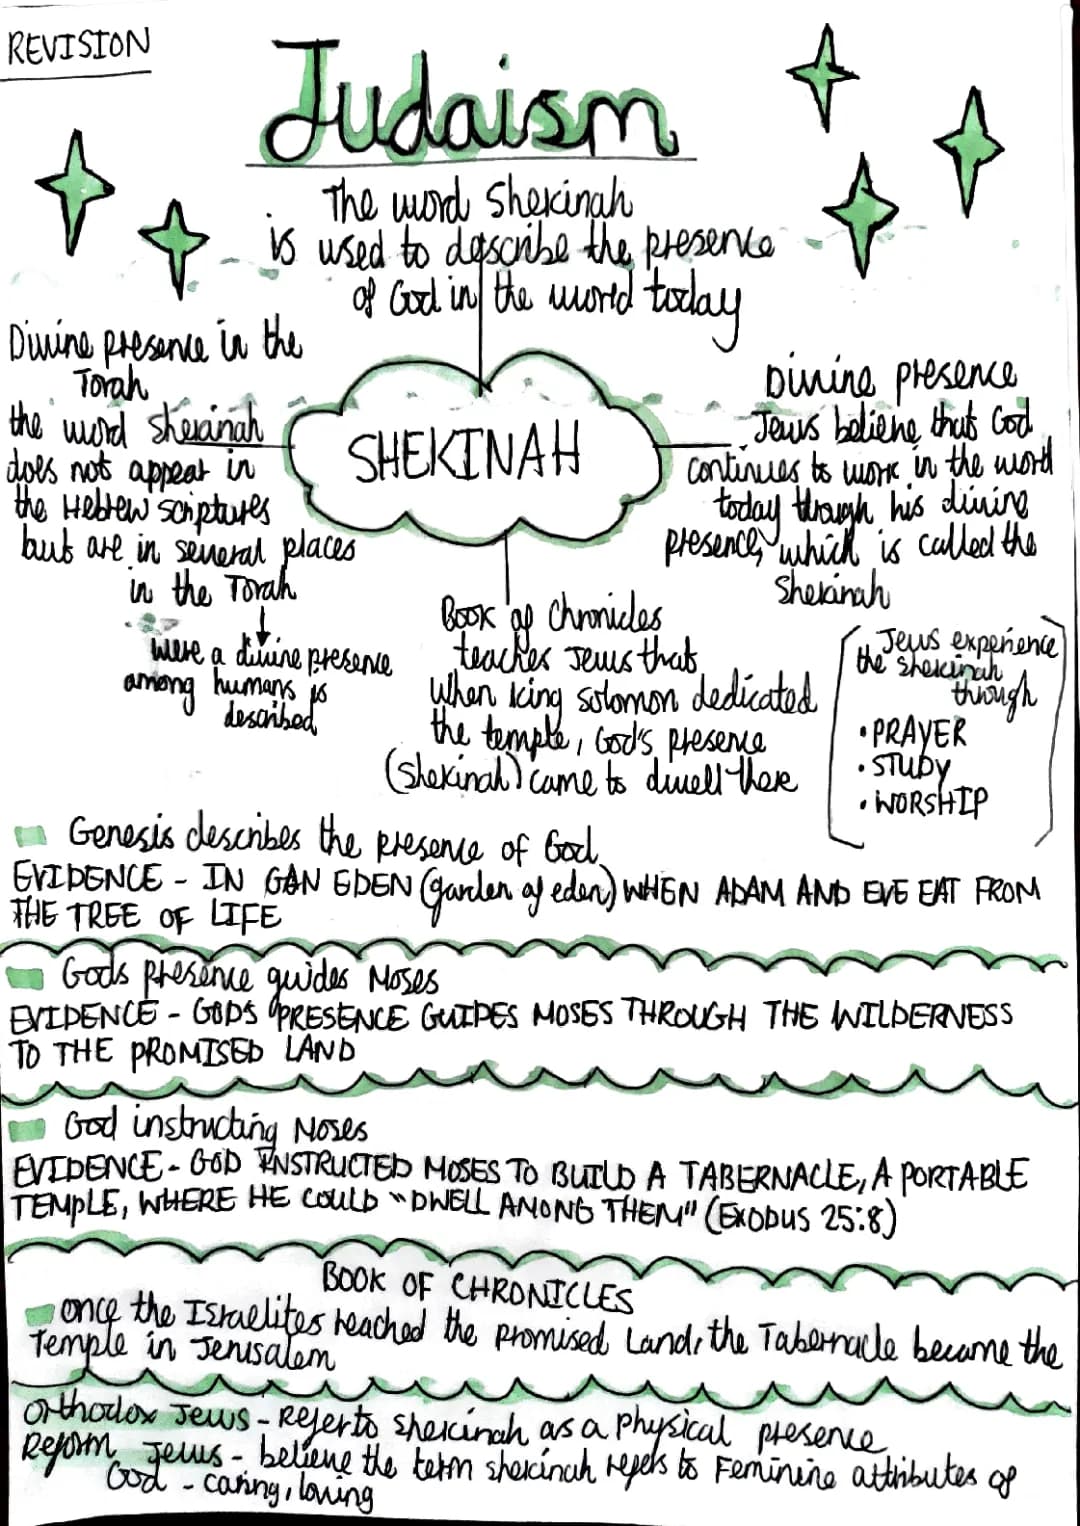 REVISION
Judaism
The word Shekinah
is used to describe the presence
of God in the world today
Divine presence in the
Torah
the word shekinah
does not appear in
the Hebrew scriptures
but are in several places
in the Torah
were a divine presence
among humans is
described
SHEKINAH
Divine presence
Jews believe that God
continues to work in the word
today through his divine
presence, which is called the
Shekinah
Book of Chronicles
teaches Jews that
when king solomon dedicated
the temple, God's presence
(shekinah) came to dwell there
Jews experience
the shekinah
through
• PRAYER
• STUDY
• WORSHIP
Genesis describes the presence of God
EVIDENCE - IN GAN EDEN (garden of eden) WHEN ADAM AND EVE EAT FROM
THE TREE OF LIFE
Gods presence guides Moses
EVIDENCE - GODS PRESENCE GUIDES MOSES THROUGH THE WILDERNESS
TO THE PROMISED LAND
God instructing Moses
EVIDENCE - GOD INSTRUCTED MOSES TO BUILD A TABERNACLE, A PORTABLE
TEMPLE, WHERE HE COULD "DWELL AMONG THEM" (EXODUS 25:8)
BOOK OF CHRONICLES
once the Israelites reached the promised Land, the Tabernacle became the
Temple in Jerusalem
Orthodox Jews - Refer to shekinah as a physical presence
Reform Jews - believe the term shekinah refers to Feminine attributes of
God - caring, loving